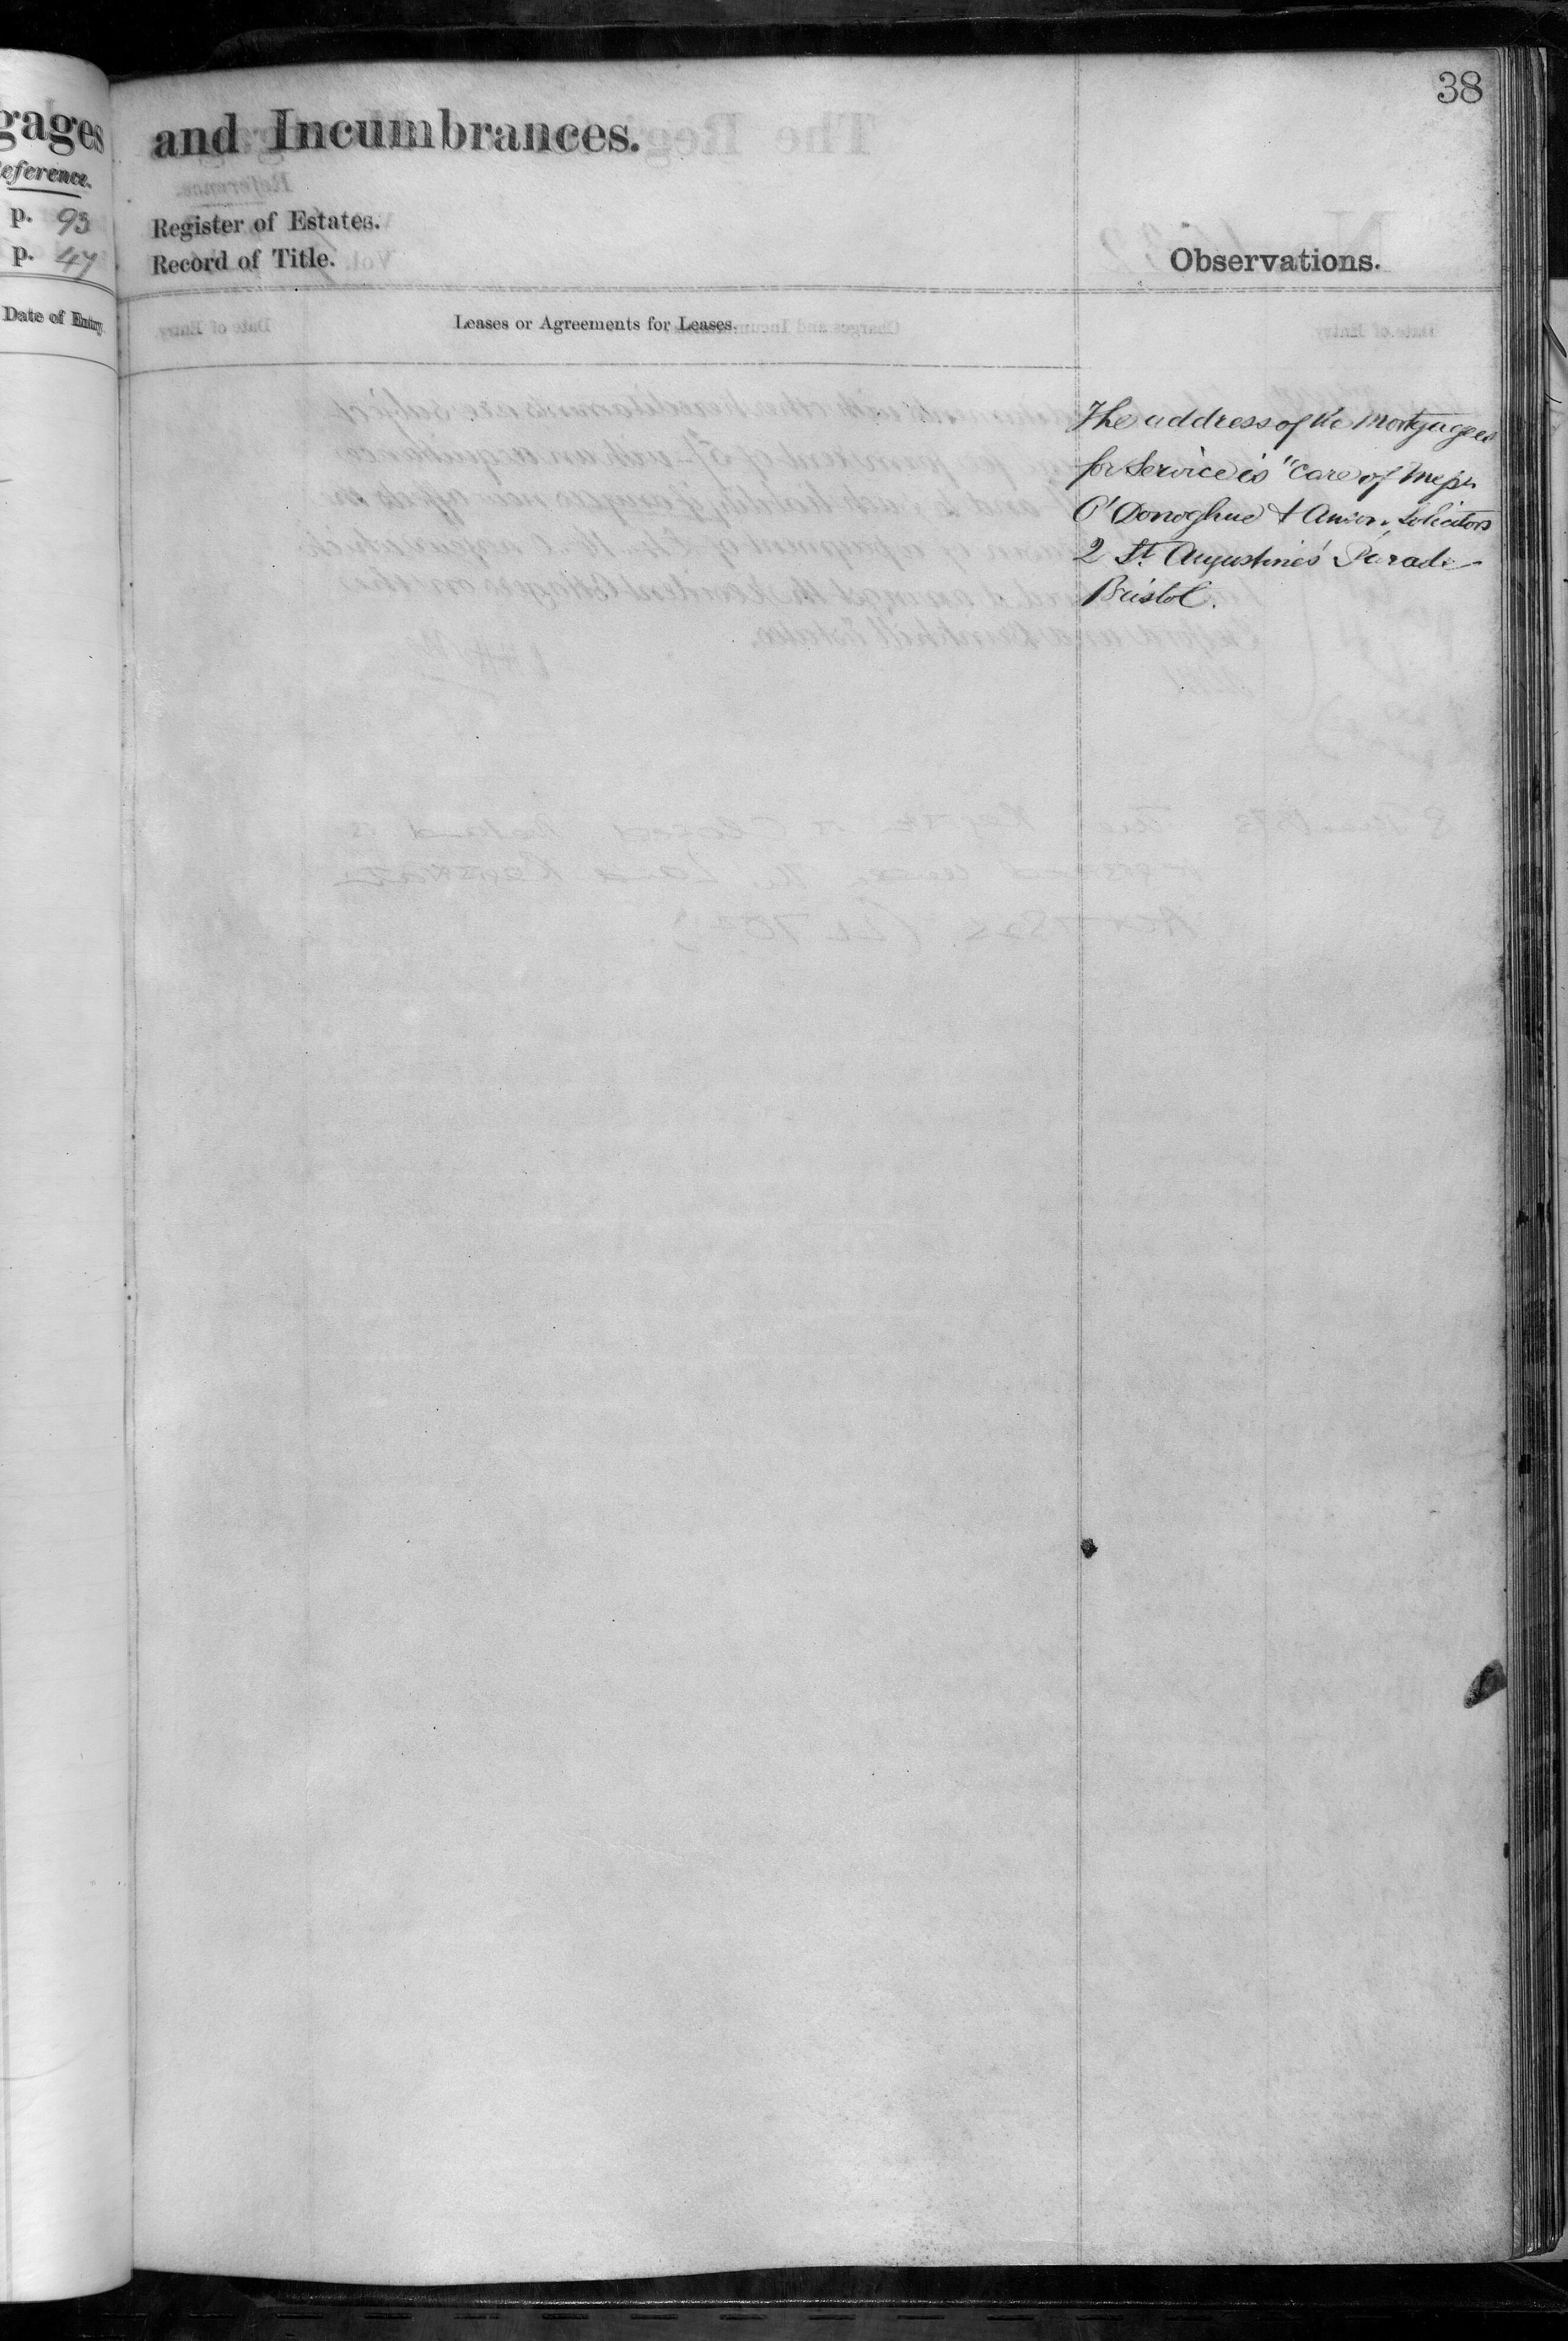 gages
eference.
p. 93
p. 47
Date of Entry
38
and Incumbrances.
Register of Estates.
Record of Title.
Observations.
Leases or Agreements for Leases.
The address of the Mortgagees
for Service is "Care of Messrs
O'Donoghue & Anson, Solicitors
2 St Augustine's Parade
Bristol.